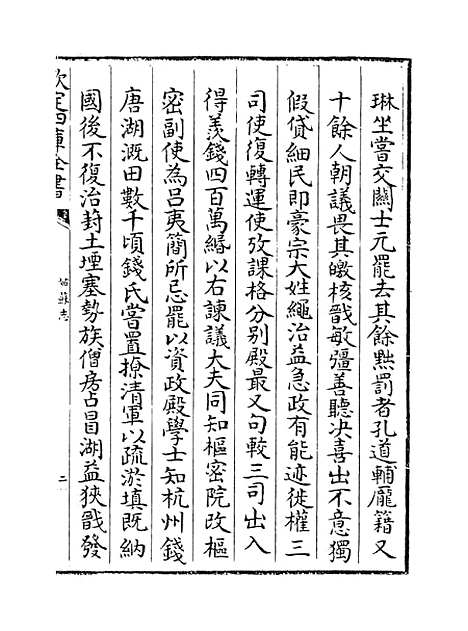 琳坐嘗交關士元罷去其餘黜罰者孔道輔龐籍又
十餘人朝議畏其皦核戩敏彊善聽决喜出不意獨
假貸細民即豪宗大姓繩治益急政有能迹徙權三
司使復轉運使攷課格分别殿最又句較三司出入
得羨錢四百萬緡以右諫議大夫同知樞密院改樞
密副使為吕夷簡所忌罷以資政殿學士知杭州錢
唐湖溉田數千頃錢氏嘗置撩清軍以疏淤填既納
國後不復治葑土堙塞勢族僧房占冒湖益狹戩發
欽定四庫全書
姑蘇志
二